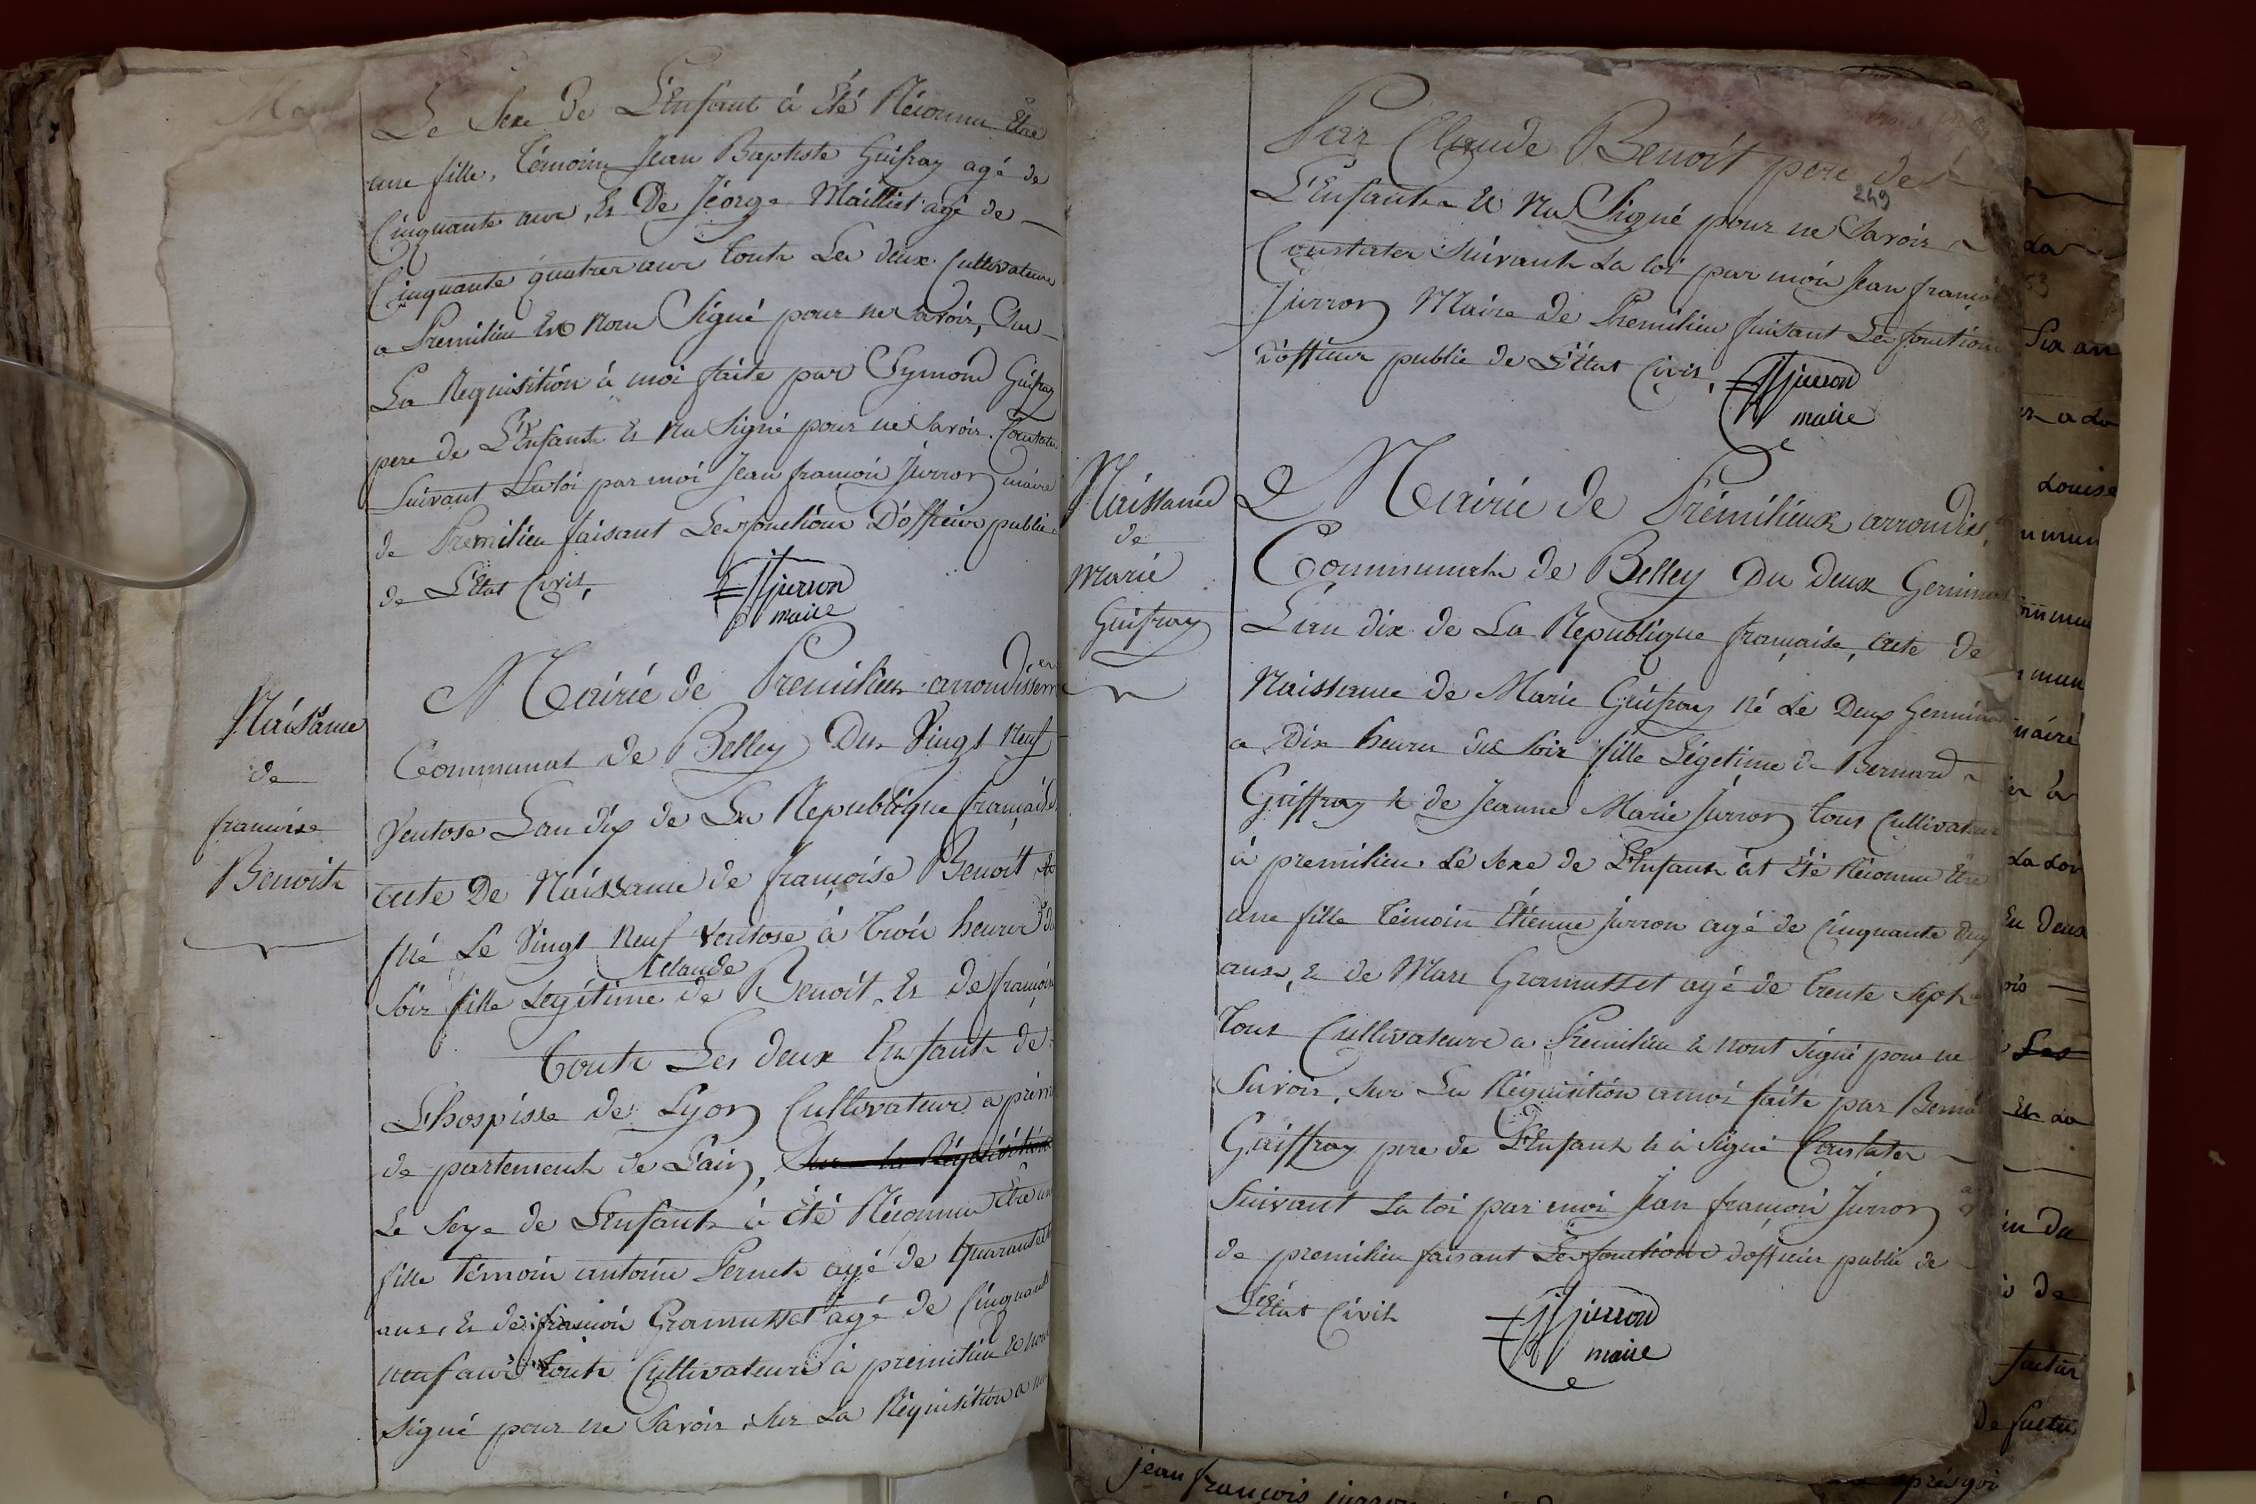 Le Sexe de L'Enfant à Été Réconnu Etre
une fille, Témoin Jean Baptiste Guifray agé de
Cinquante ans, Et De Jéorge Mailliet agé de
Cinquante quatres ans touts Les deux Cultivateurs
a Premilieu Et Nons Signé pour ne Savoir, Sur
La Requisitión à moi faite par Symond Guifray
pere de L'Enfants Et Na Signé pour ne Savoir. Constater
Suivant La loi par moi Jean françoi Jurron maire
de Premilieu faisant Les fonctions D'officier public
de L'Etat Civil, JJjurron
maire
Naissance
de
françoise
Benoit
Mairié de Premilieu arrondissem
Communal de Belley Du Vingt Neuf
Ventose L'an dix de La Republique française
acte De Naissance de françoise Benoit
Né Le Vingt Neuf Ventose à trois heures du
Claude
Soir fille Legitime de Benoit, Et De françoise
touts Les deux Enfants de
L'hospisse de Lyon Cultivateurs a prém
de partements de L'ain, Sur la Réquisition
Le Sexe de L'Enfants à été Réconnu Etre une
fille témoin antoine Pernet agé de quarante
ans, Et de françoi Gramusset agé de Cinquante
neuf ans touts Cultivateurs à premilieu Et nons
Signé pour ne Savoir. Sur La Réquisition a moi
Par Claude Benoit pere de
249
L'Enfants Et Na Signé pour ne Savoir
Constater Suivants La loi par moi Jean françoi
Jurron Maire de Premilieu faisant Les fonctions
D'officier public de L'état Civil, JJjurron
maire
Naissance
de
Marie
Guifray
Mairié de Prémilieux arrondis,
Communals de Belley Du Deux Germinal
L'an dix de La Republique française, acte de
Naissance de Marie Guifray Né Le Deux Germinal
a Dix heures du Soir fille Légetime de Bernard
Guiffray Et de Jeanne Marie Jurron tous Cultivateurs
à premilieu. Le Sexe de L'Enfants at Été Réconnu Etre
une fille témoin Etienne Jurron agé de Cinquante deux
ans, Et de Marc Gramusset agé de trente Sept
tous Cultivateurs a Premilieu Et nont Signé pour ne
Savoir, Sur La Réquisition amoi faite par Bernard
Guiffray pere de L'Enfants Et à Signé Constater
Suivant La loi par moi Jean françoi Jurron
de premilieu faisant Les fonctions d'officier public de
L'Etat Civil JJjurron
maire
La
Six an
Louise
La
Deux
Les
Et La
de
jean françois jurron